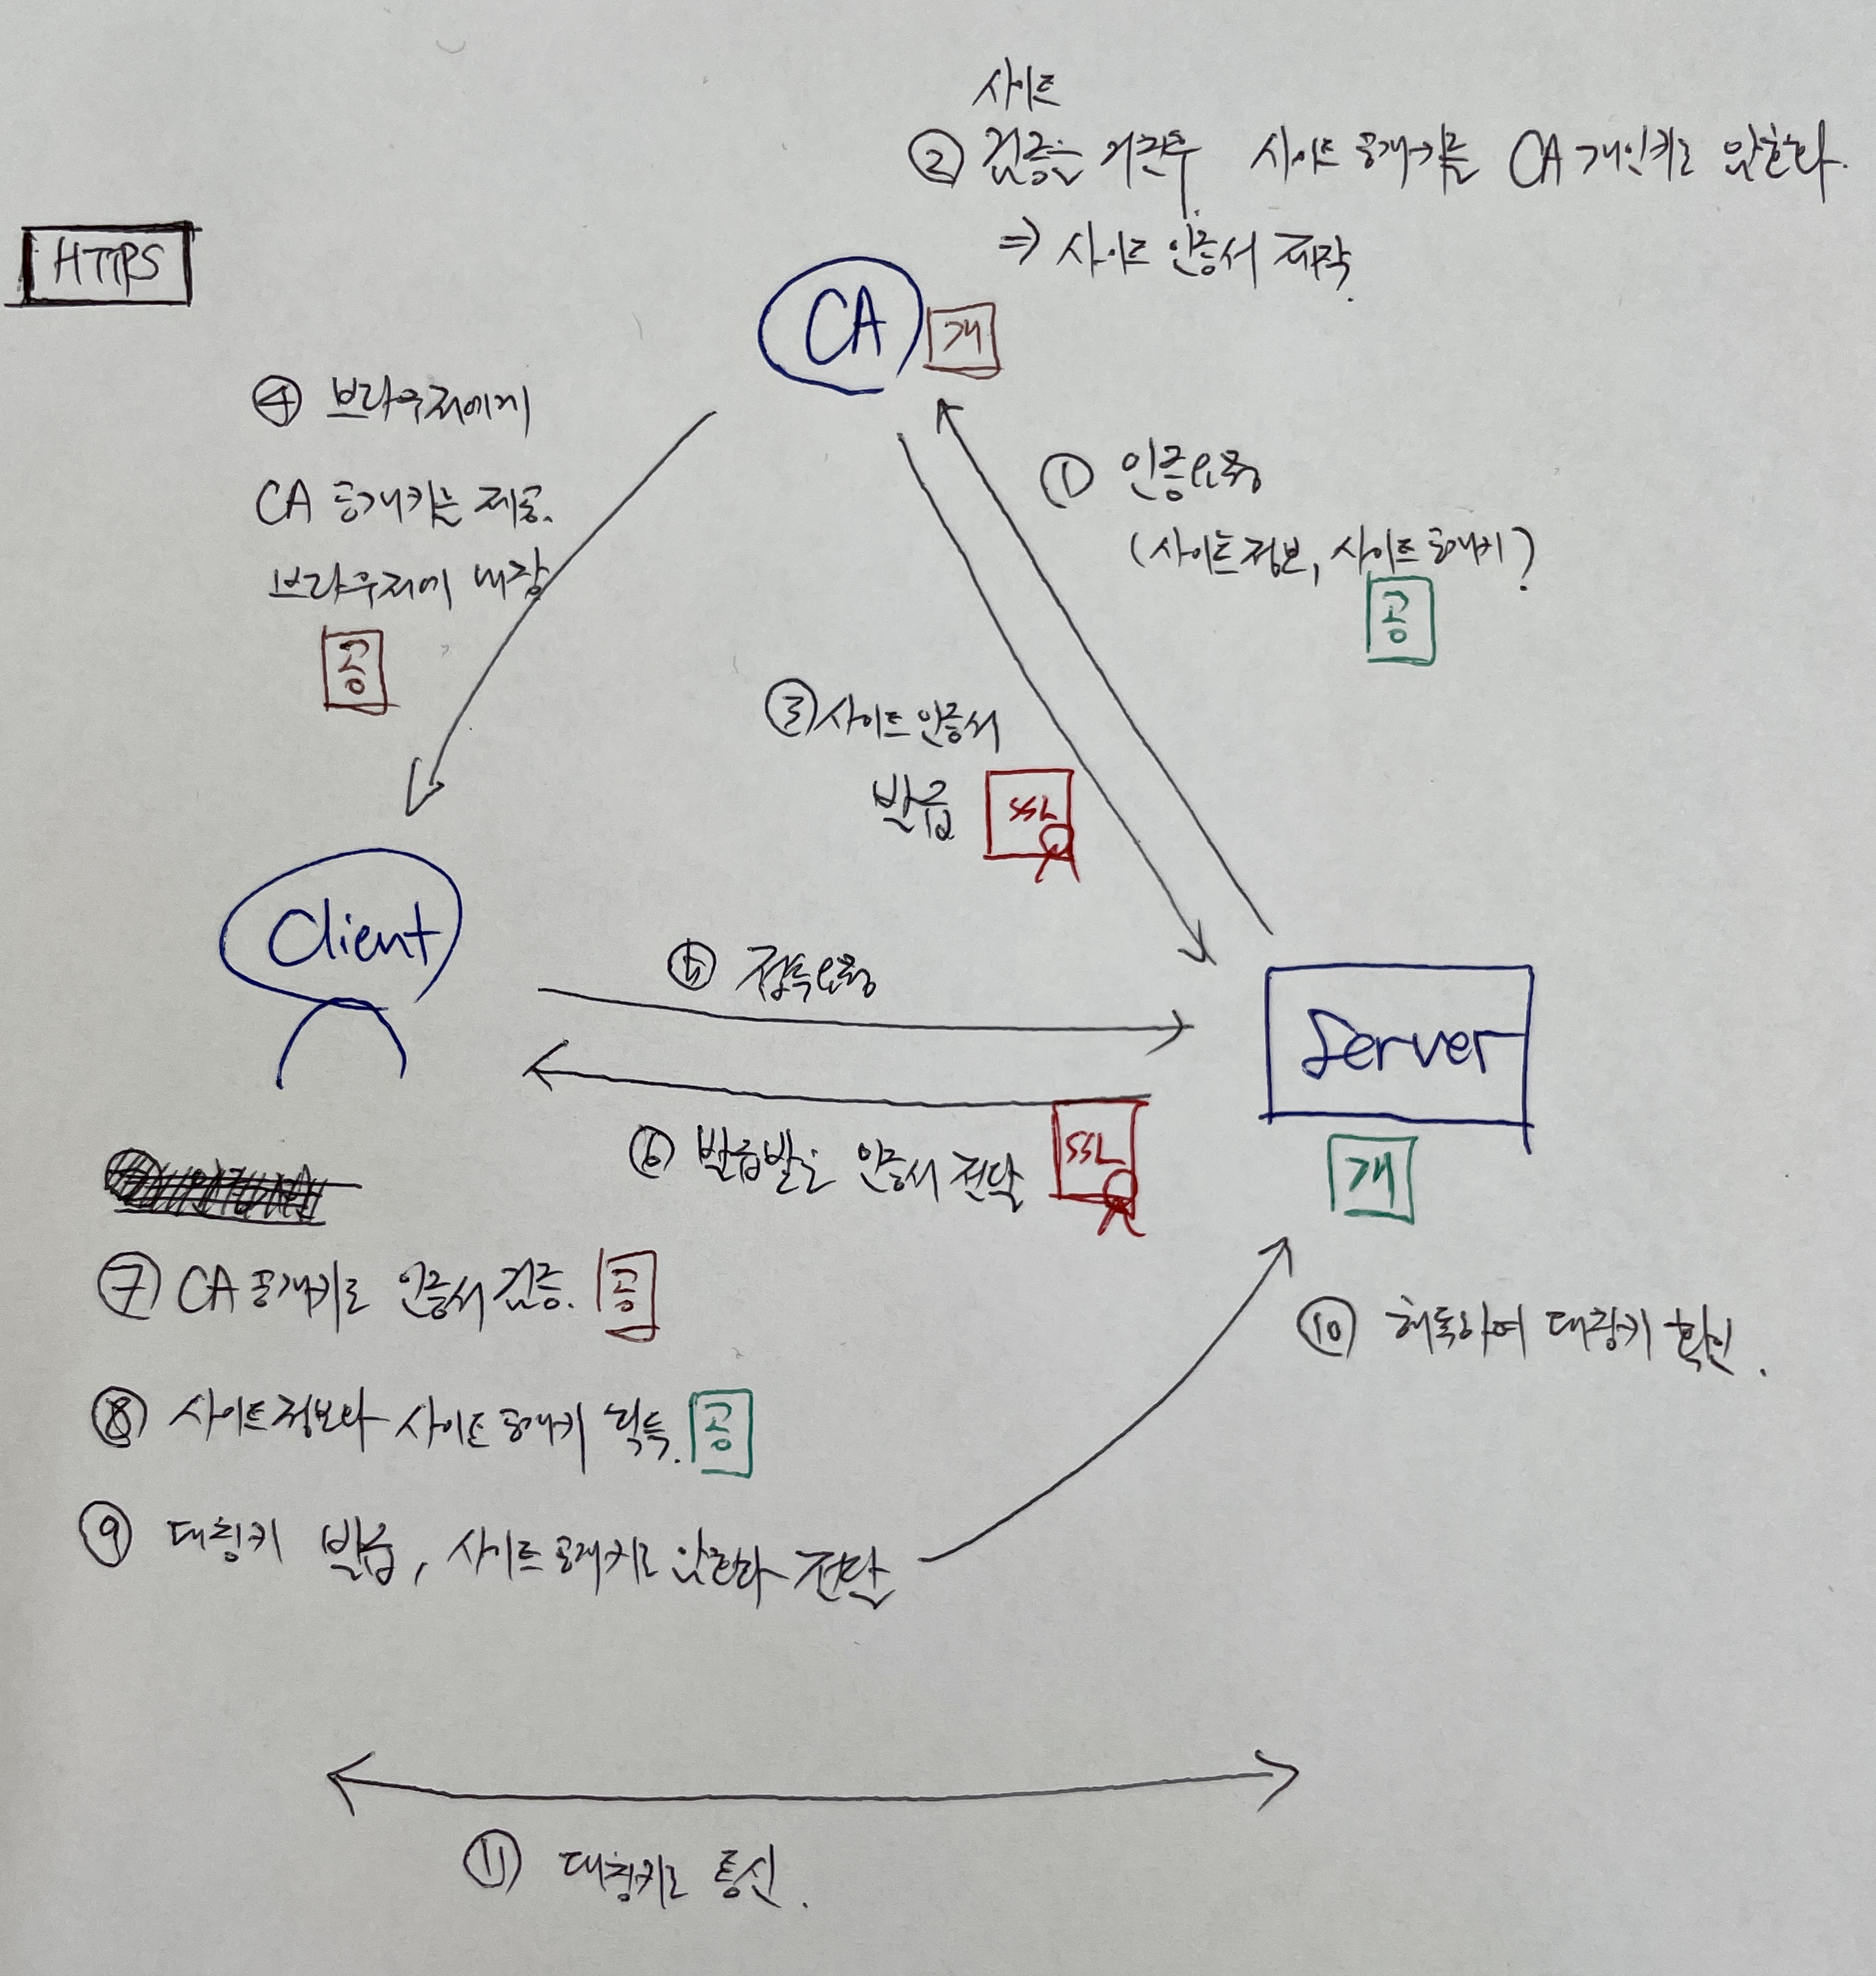 사이트
② 검증을 거친후 사이트 공개키를 CA 개인키로 암호화.
⇒ 사이트 인증서 제작.
HTTPS
CA
개
④ 브라우저에게
CA 공개키는 제공.
브라우저에 내장
공
① 인증요청
(사이트정보, 사이트 공개키)
공
③ 사이트 인증서
발급
SSL
Client
⑤ 접속요청
Server
⑥ 발급받은 인증서 전달
SSL
개
⑦ CA 공개키로 인증서 검증.
공
⑩ 해독하여 대칭키 확인.
⑧ 사이트정보와 사이트 공개키 획득.
공
⑨ 대칭키 발급, 사이트 공개키로 암호화 전달
⑪ 대칭키로 통신.